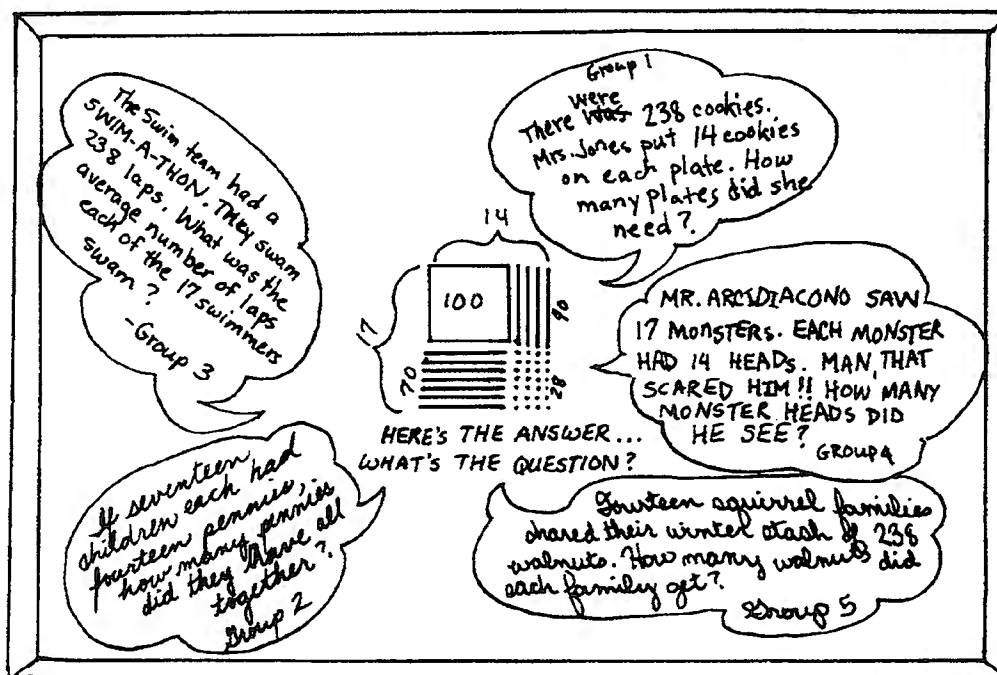 The Swim team had a
SWIM-A-THON. They swam
238 laps. What was the
average number of laps
each of the 17 swimmers
swam?
-Group 3
Group 1
were
There was 238 cookies.
Mrs. Jones put 14 cookies
on each plate. How
many plates did she
need?
14
17
100
40
70
28
HERE'S THE ANSWER...
WHAT'S THE QUESTION?
MR. ARCIDIACONO SAW
17 MONSTERS. EACH MONSTER
HAD 14 HEADS. MAN, THAT
SCARED HIM!! HOW MANY
MONSTER HEADS DID
HE SEE?
GROUP 4
If seventeen
children each had
fourteen pennies,
how many pennies
did they have all
together?
Group 2
Fourteen squirrel families
shared their winter stash of 238
walnuts. How many walnuts did
each family get?
Group 5